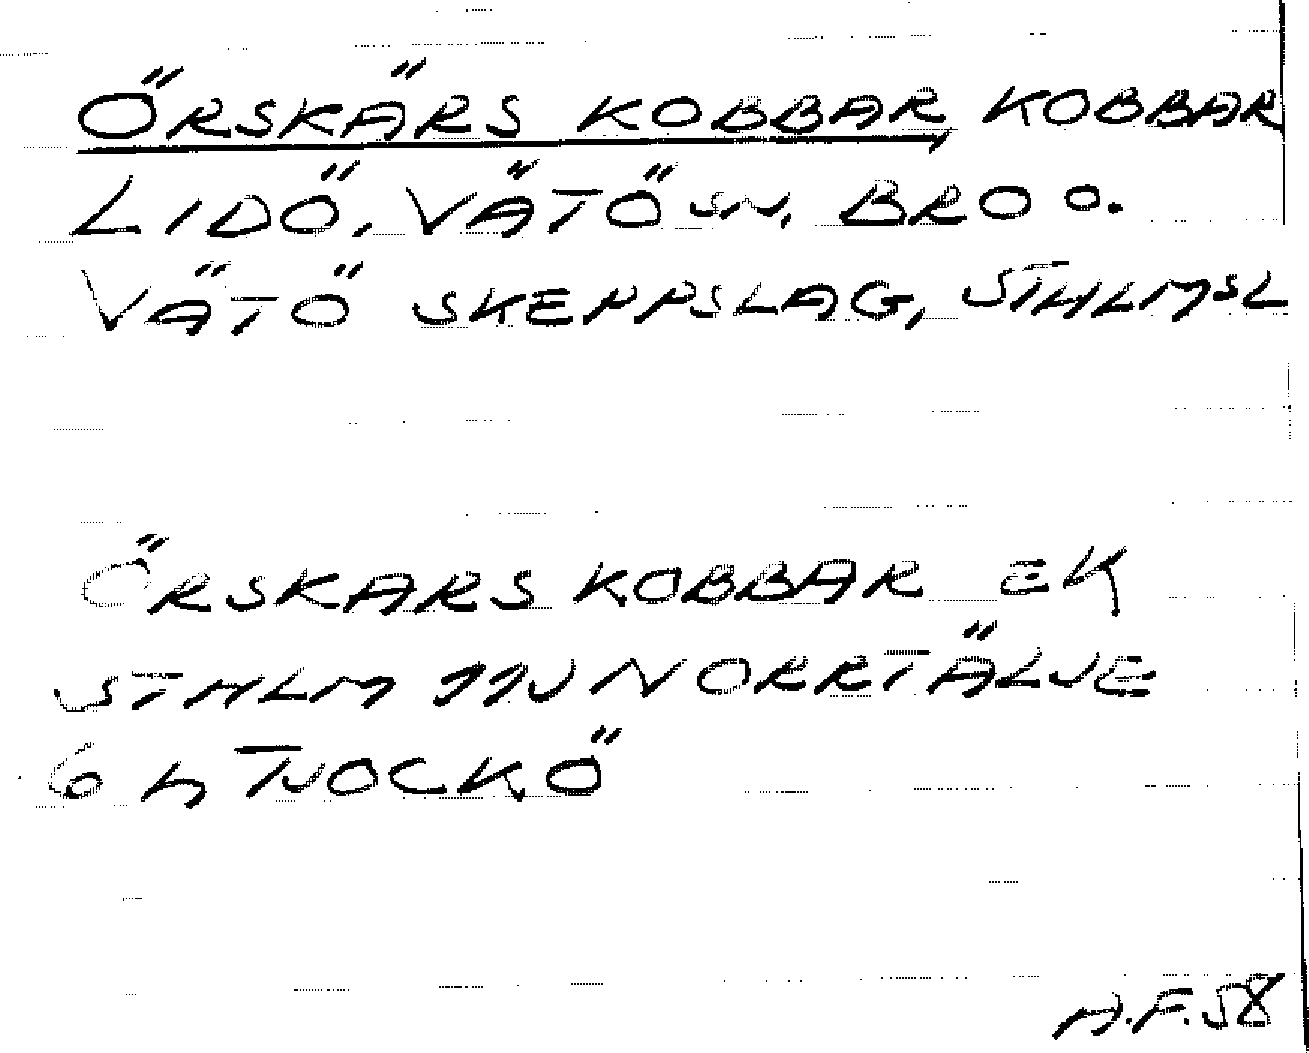 ÖRSKÄRS KOBBAR, KOBBAR
LIDÖ, VÄTÖ SN, BRO O.
VÄTÖ SKEPPSLAG, STHLMSL
ÖRSKARS KOBBAR EK
STHLM 11J NORRTÄLJE
6 h TJOCKÖ
A.F. 58